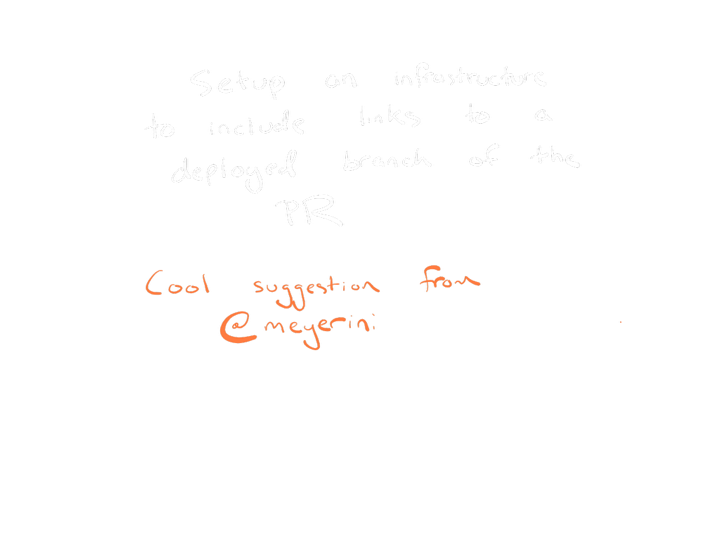 Setup an infrastructure
to include links to a
deployed branch of the
PR
Cool suggestion from
@meyerini